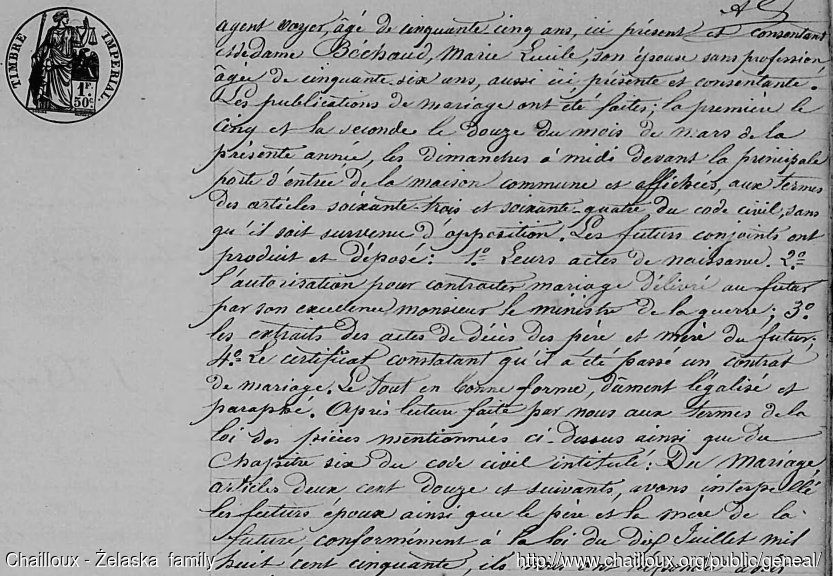 TIMBRE IMPERIAL.
1F.
50c.
agent voyer, âgé de cinquante cinq ans, ici présent et consentant
et de dame Bechaud, Marie Lucile, son épouse sans profession
âgée de cinquante-six ans, aussi ici présente et consentante.
Les publications de mariage ont été faites; la première le
cinq et la seconde le douze du mois de mars de la
présente année, les dimanches à midi devant la principale
porte d'entrée de la maison commune et affichées, aux termes
des articles soixante-trois et soixante-quatre du code civil, sans
qu'il soit survenu d'opposition. Les futurs conjoints ont
produit et déposé: 1.o Leurs actes de naissance. 2.o
l'autorisation pour contracter mariage délivré au futur
par son excellence monsieur le ministre de la guerre; 3.o
les extraits des actes de décès des père et mère du futur;
4.o Le certificat constatant qu'il a été passé un contrat
de mariage. Le tout en bonne forme, dûment légalisé et
paraphé. Après lecture faite par nous aux termes de la
loi des pièces mentionnées ci-dessus ainsi que du
Chapitre six du code civil intitulé: Du Mariage
articles deux cent douze et suivants, avons interpellé
les futurs époux ainsi que le père et la mère de la
future conformément à la loi du dix Juillet mil
huit cent cinquante, ils
Chailloux - Żelaska family
http://www.chailloux.org/public/geneal/